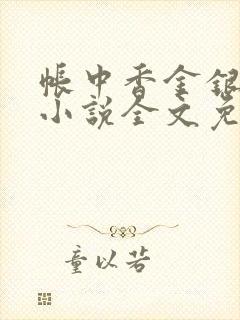 帐中香金银
小说全文免
童以若